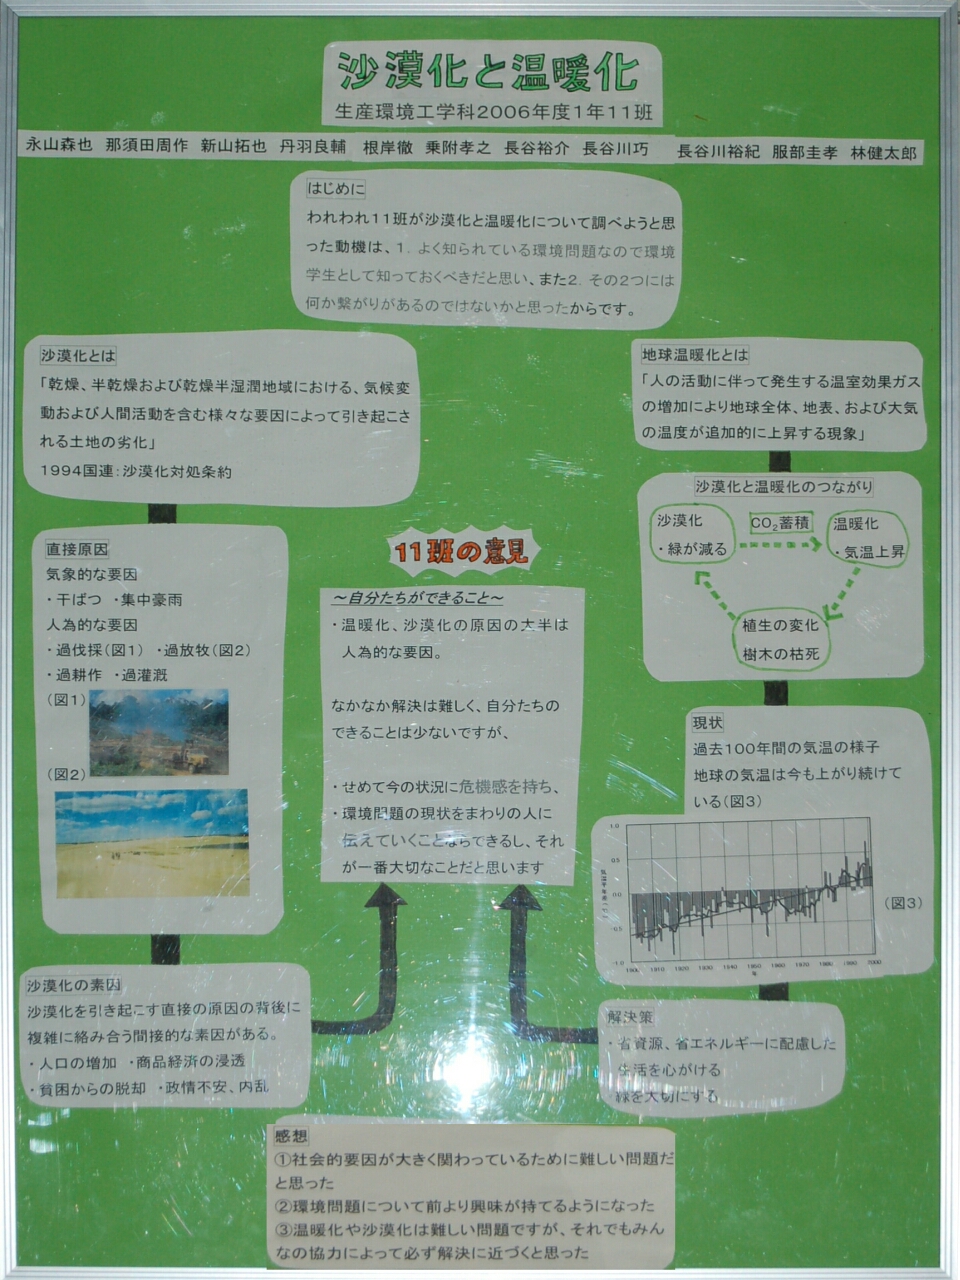 沙漠化と温暖化
生産環境工学科2006年度1年11班
永山森也 那須田周作 新山拓也 丹羽良輔 根岸徹 乗附孝之 長谷裕介 長谷川巧 長谷川裕紀 服部圭孝 林健太郎
はじめに
われわれ11班が沙漠化と温暖化について調べようと思
った動機は、1．よく知られている環境問題なので環境
学生として知っておくべきだと思い、また2．その2つには
何か繋がりがあるのではないかと思ったからです。
沙漠化とは
「乾燥、半乾燥および乾燥半湿潤地域における、気候変
動および人間活動を含む様々な要因によって引き起こさ
れる土地の劣化」
1994国連：沙漠化対処条約
直接原因
気象的な要因
・干ばつ ・集中豪雨
人為的な要因
・過伐採（図1） ・過放牧（図2）
・過耕作 ・過灌漑
（図1）
（図2）
沙漠化の素因
沙漠化を引き起こす直接の原因の背後に
複雑に絡み合う間接的な素因がある。
・人口の増加 ・商品経済の浸透
・貧困からの脱却 ・政情不安、内乱
11班の意見
～自分たちができること～
・温暖化、沙漠化の原因の大半は
人為的な要因。
なかなか解決は難しく、自分たちの
できることは少ないですが、
・せめて今の状況に危機感を持ち、
・環境問題の現状をまわりの人に
伝えていくことならできるし、それ
が一番大切なことだと思います
地球温暖化とは
「人の活動に伴って発生する温室効果ガス
の増加により地球全体、地表、および大気
の温度が追加的に上昇する現象」
沙漠化と温暖化のつながり
沙漠化
・緑が減る
CO₂蓄積
温暖化
・気温上昇
植生の変化
樹木の枯死
現状
過去100年間の気温の様子
地球の気温は今も上がり続けて
いる（図3）
1.0
0.5
0.0
-0.5
-1.0
1900 1910 1920 1930 1940 1950 1960 1970 1980 1990 2000
年
（図3）
解決策
・省資源、省エネルギーに配慮した
生活を心がける
・緑を大切にする
感想
①社会的要因が大きく関わっているために難しい問題だ
と思った
②環境問題について前より興味が持てるようになった
③温暖化や沙漠化は難しい問題ですが、それでもみん
なの協力によって必ず解決に近づくと思った